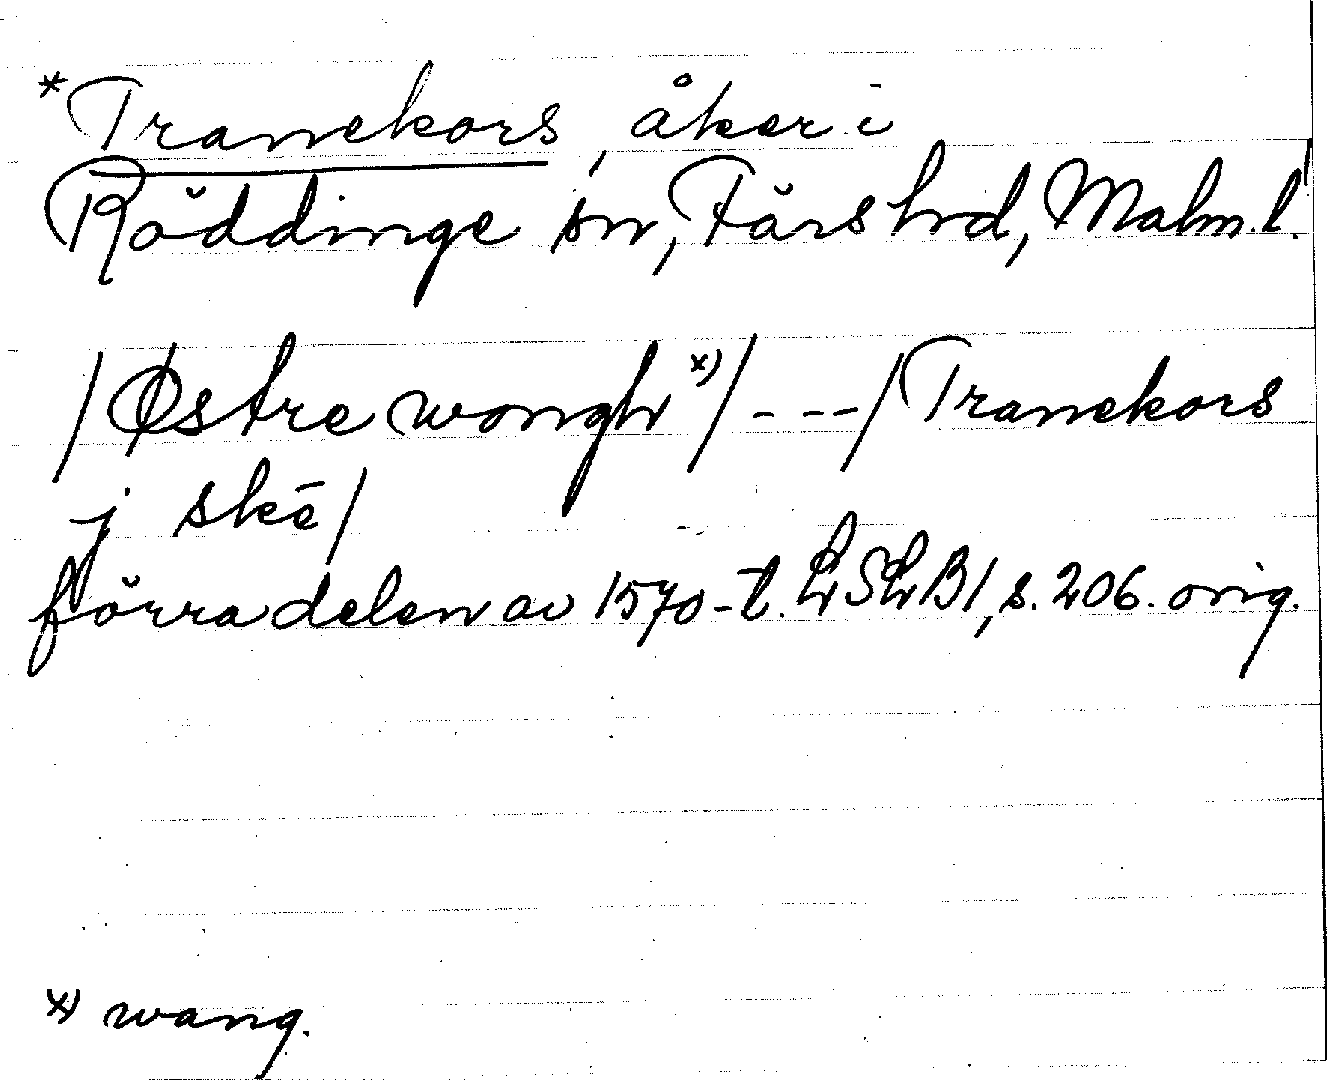 *Tranekors, åker i
Röddinge sn, Färs hrd, Malm. l.
/Østre wongh x)/---/Tranekors
j skē/
förra delen av 1570-t. LSLB1, s. 206. orig.
x) wang.